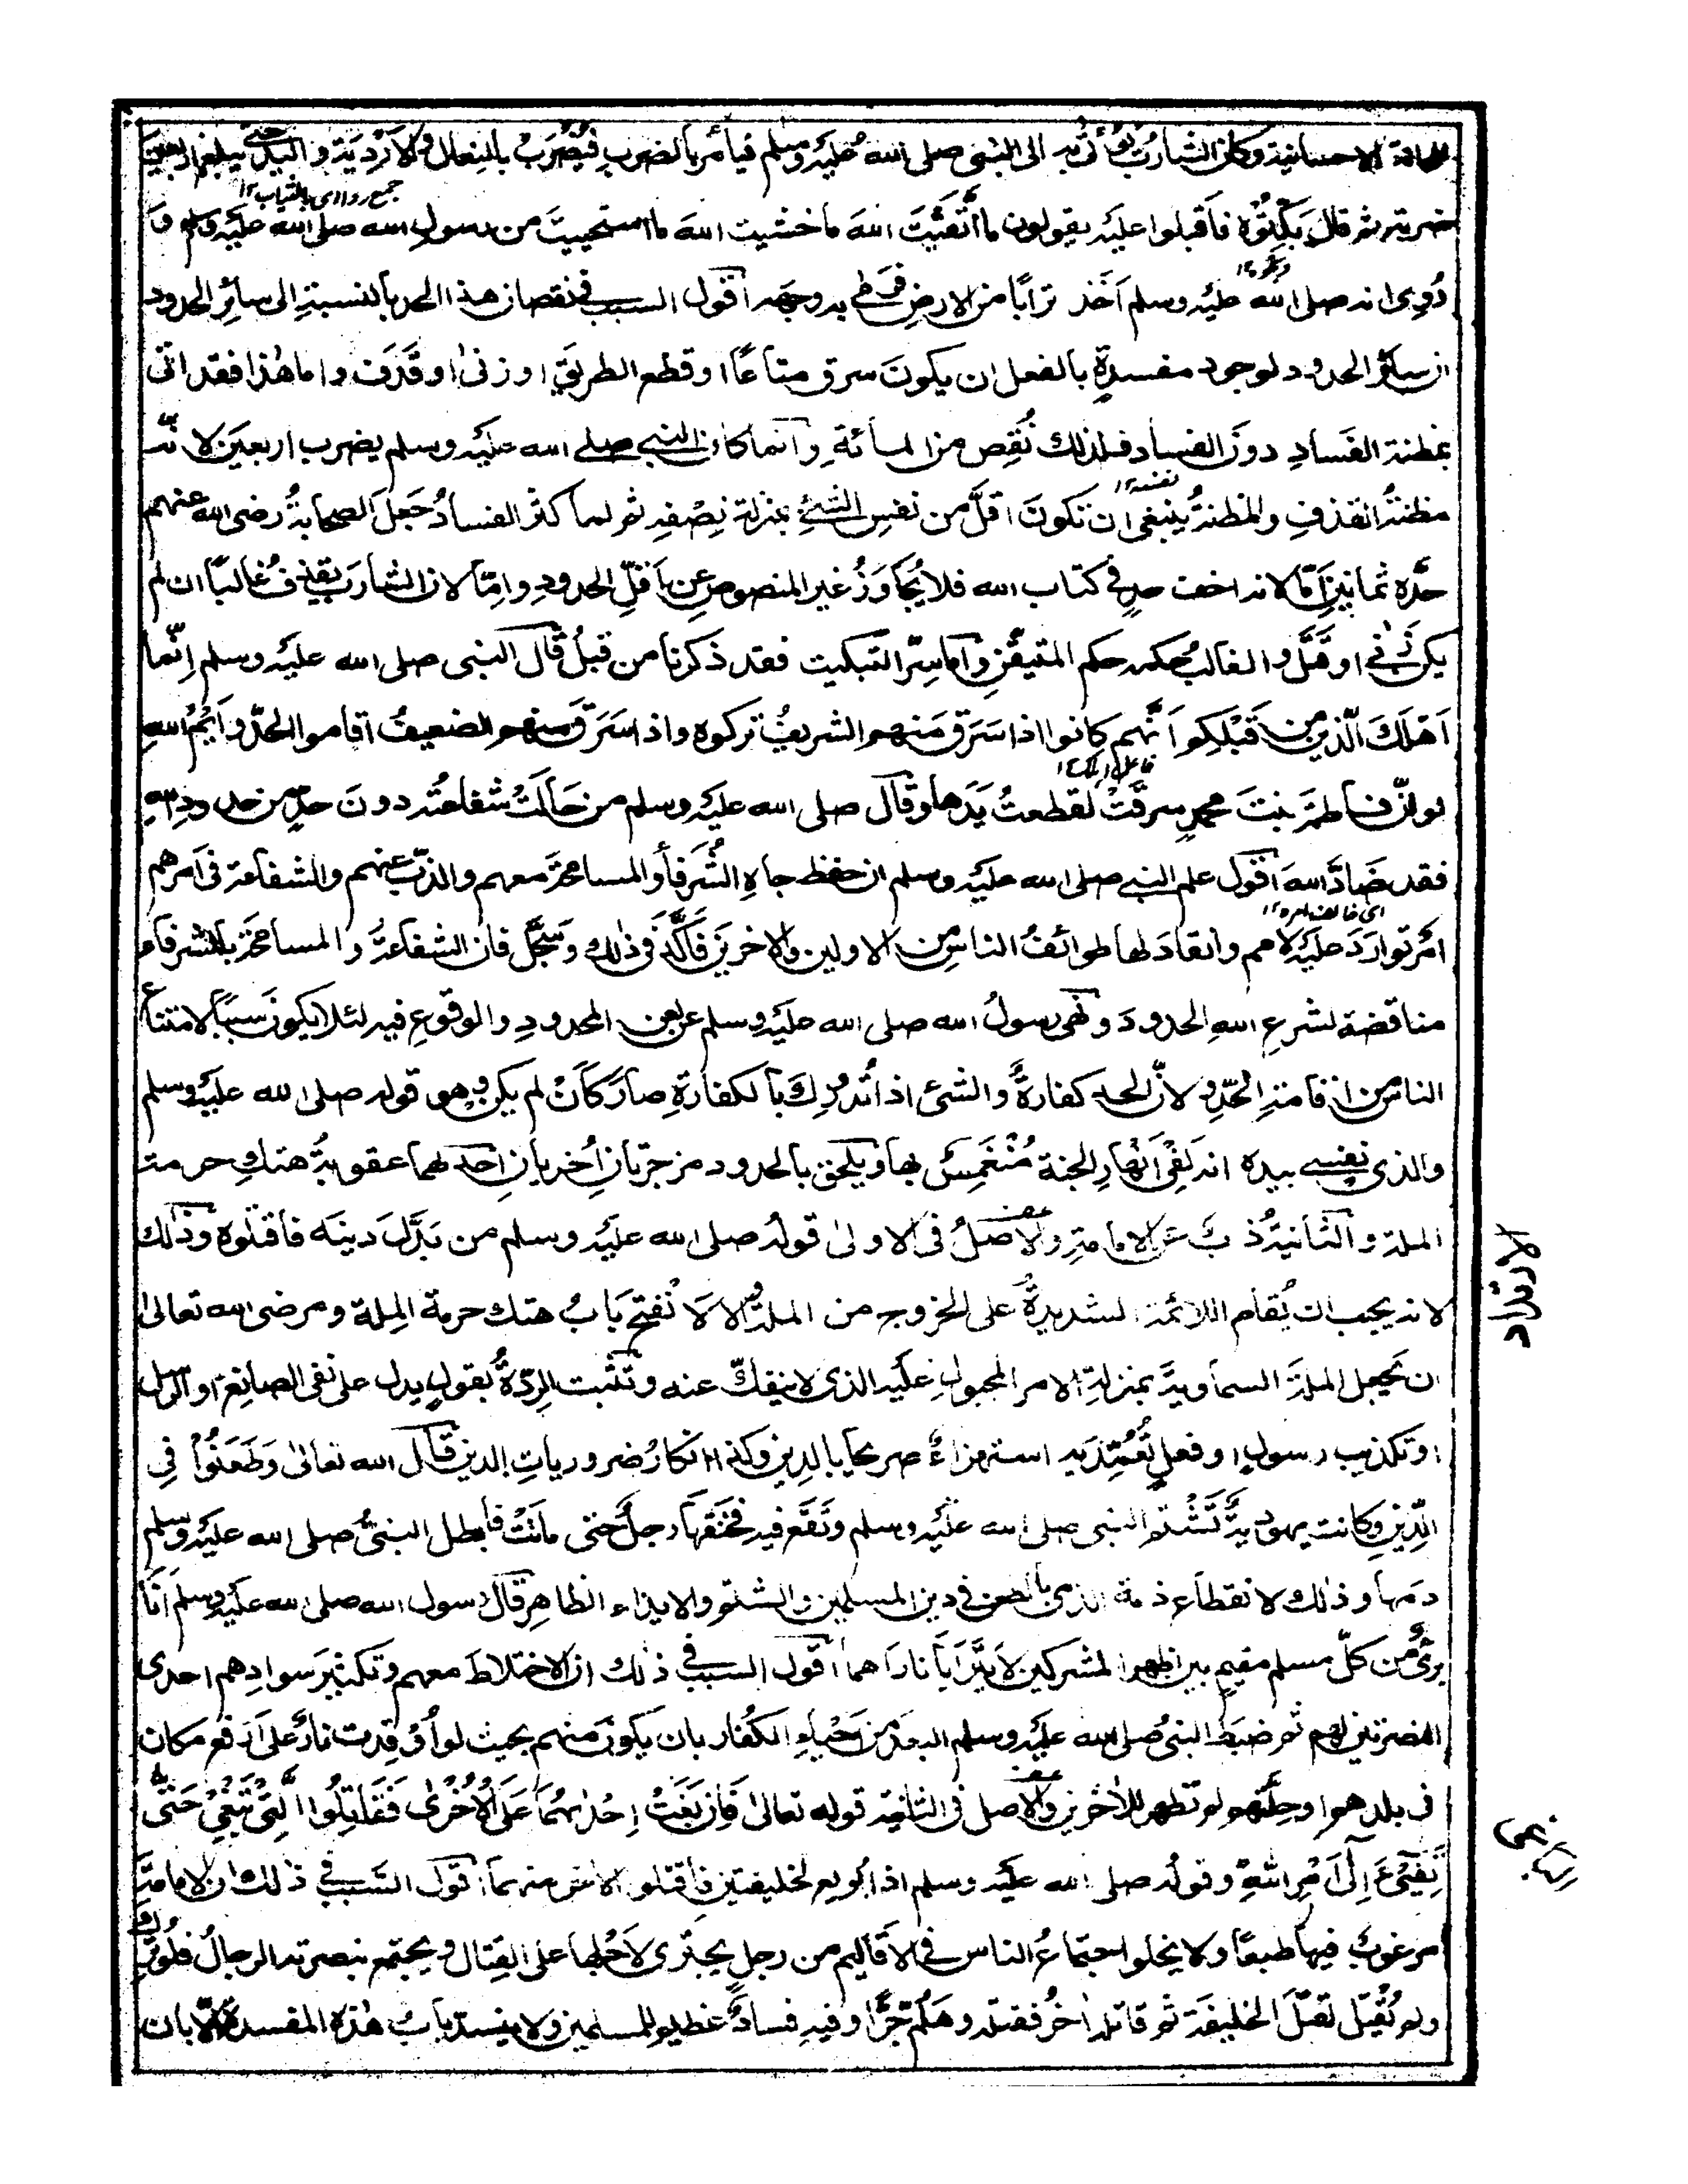 للملة الاحسانية وكان الشارب يؤتى به الى النبى صلى الله عليه وسلم فيأمر بالضرب فيُضرَب بالنعال والأردِيَة واليد حتى يبلغ اربعين
جمع رداء اى بالثياب ١٢
ضربة ثم قال بَكِّتُوْه فاَقبلوا عليه يقولون ما اتَّقَيْتَ اللهَ ما خشيت اللهَ ما استحييتَ من رسول الله صلى الله عليه وسلم و
رُوِى انه صلى الله عليه وسلم اَخَذ ترابًا من الارض فرَمٰى به وجهه اقول السبب فى نقصان هذا الحد بالنسبةِ الى سائِر الحدود
ان سائر الحدود لوجود مفسدةٍ بالفعل ان يكونَ سرق متاعًا او قطع الطريق او زنٰى او قَذَف واما هٰذا فقد اتى
بمظنة الفَسادِ دونَ الفساد فلذلك نُقِص من المائة وانما كان النبى صلى الله عليه وسلم يضرب اربعين لانه
مظنةُ القذفِ والمظنةُ ينبغى ان تكونَ اقلَّ من نفسِ الشئ بمنزلة نِصْفِه ثم لما كثر الفسادُ جَعَلَ الصحابةُ رضى الله عنهم
حدَّه ثمانين اِمّا لانه اخف حدٍ فى كتاب الله فلا يُجاوَزُ غيرُ المنصوص عن اَقَلِّ الحدودِ واِمّا لان الشاربَ يقذف غالبًا ان لم
يكن زَنٰى او قَتَل والغالبُ حكمه حكم المتيقَّنِ واما سِرّ التبكيت فقد ذكرنا من قبلُ قال النبى صلى الله عليه وسلم اِنّما
اَهْلَكَ الّذين من قَبْلِكم اَنَّهم كانوا اذا سَرَق منهم الشريفُ تركوه واذا سَرَق منهم الضعيفُ اقاموا الحدَّ واَيْمُ اللهِ
لو انّ فاطمةَ بنتَ محمدٍ سرقَتْ لقطعتُ يَدَها وقال صلى الله عليه وسلم من حَالَتْ شفاعتُه دونَ حدٍّ من حدودِ اللهِ
فقد ضَادَّ اللهَ اقول علم النبى صلى الله عليه وسلم ان حفظ جاهِ الشُّرَفاء والمسامحةَ معهم والذبَّ عنهم والشفاعة فى اَمرهم
اى خالف امره ١٢
امرٌ تواردَ عليه الامم وانقادَ لها طوائفُ الناس من الاولين والاخرين فاَكَّدَ فى ذٰلك وسَجَّل فان الشفاعةَ والمسامحةَ بالشرفاء
مناقضة لشرعِ اللهِ الحدودَ ونَهٰى رسولُ الله صلى الله عليه وسلم عن لعن المحدودِ والوقوعِ فيه لئلا يكونَ سببًا لامتناع
الناس من اقامةِ الحدِّ ولانَّ الحد كفارةٌ والشئ اذا تُدُورِكَ بالكفارةِ صارَ كَاَنْ لم يكن وهو قوله صلى الله عليه وسلم
والذى نفسى بيده انه لفِىْ اَنْهارِ الجنة مُنْغَمِسٌ بها ويلحق بالحدود مزجرتانِ اُخريانِ احدٰهما عقوبةُ هتكِ حرمة
الملة والثانيةُ ذبٌّ عن الامامةِ والاصلُ فى الاولىٰ قولُه صلى الله عليه وسلم من بَدَّلَ دينَه فاقتلوه وذٰلك
لانه يجب ان يُقام اللائمة الشديدةُ على الخروج من الملة والا لَانْفتح بَابُ هتك حرمة المِلة ومرضى الله تعالىٰ
ان تُجعل الملةُ السماويةُ بمنزلةِ الامر المجبولِ عليه الذى لا ينفكّ عنه وتثبت الرِدّةُ بقولٍ يدل على نفى الصانِعِ او الرسل
او تكذيب رسولٍ او فعلٍ تُعُمِّدَ به استهزاءً صريحًا بالدين وكذا انكارُ ضرورياتِ الدين قال الله تعالىٰ وَطَعَنُوْا فِى
الدِّيْنِ وكانت يهوديةٌ تَشْتُم النبى صلى الله عليه وسلم وتَقَع فيه فخَنَقَها رجلٌ حتى ماتَتْ فابطل النبىُّ صلى الله عليه وسلم
دمَها وذٰلك لانقطاعِ ذمة الذمى بالطعن فى دين المسلمين والشتم والايذاء الظاهِر قال رسول الله صلى الله عليه وسلم اَنَا
برئٌ من كلّ مسلم مقيم بين اظهر المشركين لَا يَتَرَآيَا نَارَاهما اقول السبب فى ذٰلك ان الاختلاطَ معهم وتكثيرَ سوادِهم احدى
النصرتين لهم ثم ضبَط النبىُّ صلى الله عليه وسلم البعدَ من اَحْياءِ الكُفار بان يكونَ منهم بحيث لو اُوْقِدت نارٌ على اَرفعِ مكان
فى بلدهم او حِلَّتهم لم تظهر للاٰخرين والاصل فى الثانية قوله تعالىٰ فَاِنْ بَغَتْ اِحْدٰىهُمَا عَلَى الْاُخْرٰى فَقَاتِلُوا الَّتِىْ تَبْغِىْ حَتّٰى
تَفِىْٓءَ اِلٰٓى اَمْرِ اللّٰهِ وقولُه صلى الله عليه وسلم اذا بُويع لخليفتين فاقتلوا الاٰخر منهما اقول السَّبب فى ذٰلك ان الامامةَ
مرغوبٌ فيها طبعًا ولا يخلو اجتماعُ الناس فى الاقاليم من رجلٍ يجترى لاَجْلِها على القِتال ويجتمع بنصرته الرجالُ فلو تُرِك
ولم يُقْتل لقتلَ الخليفةَ ثم قاتله اٰخرُ فقتله وهَلُمَّ جَرًّا وفيه فسادٌ عظيم للمسلمين ولا ينسدّ بابُ هٰذه المفسدة الا بان
الارتداد
الباغى